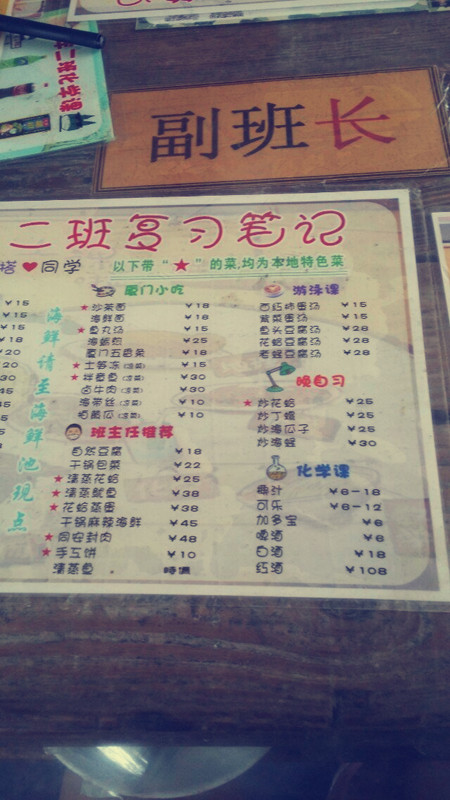 副班长
二班复习笔记
塔❤同学
以下带“★”的菜,均为本地特色菜
海鲜请至海鲜池现点
厦门小吃
★沙茶面 ￥18
海鲜面 ￥18
★鱼丸汤 ￥15
海蛎煎 ￥25
厦门五香条 ￥18
★土笋冻(凉菜) ￥15
★拌章鱼(凉菜) ￥30
卤牛肉(凉菜) ￥30
海带丝(凉菜) ￥10
拍黄瓜(凉菜) ￥10
班主任推荐
自然豆腐 ￥18
干锅包菜 ￥22
★清蒸花蛤 ￥25
★清蒸鱿鱼 ￥38
★花蛤蒸蛋 ￥38
干锅麻辣海鲜 ￥45
★同安封肉 ￥48
★手工饼 ￥10
清蒸鱼 特惠
游泳课
西红柿蛋汤 ￥15
紫菜蛋汤 ￥15
鱼头豆腐汤 ￥28
花蛤豆腐汤 ￥28
老蛏豆腐汤 ￥28
晚自习
★炒花蛤 ￥25
炒丁螺 ￥25
炒海瓜子 ￥25
炒海蛏 ￥30
化学课
椰汁 ￥6-18
可乐 ￥6-12
加多宝 ￥6
啤酒 ￥6
白酒 ￥18
红酒 ￥108